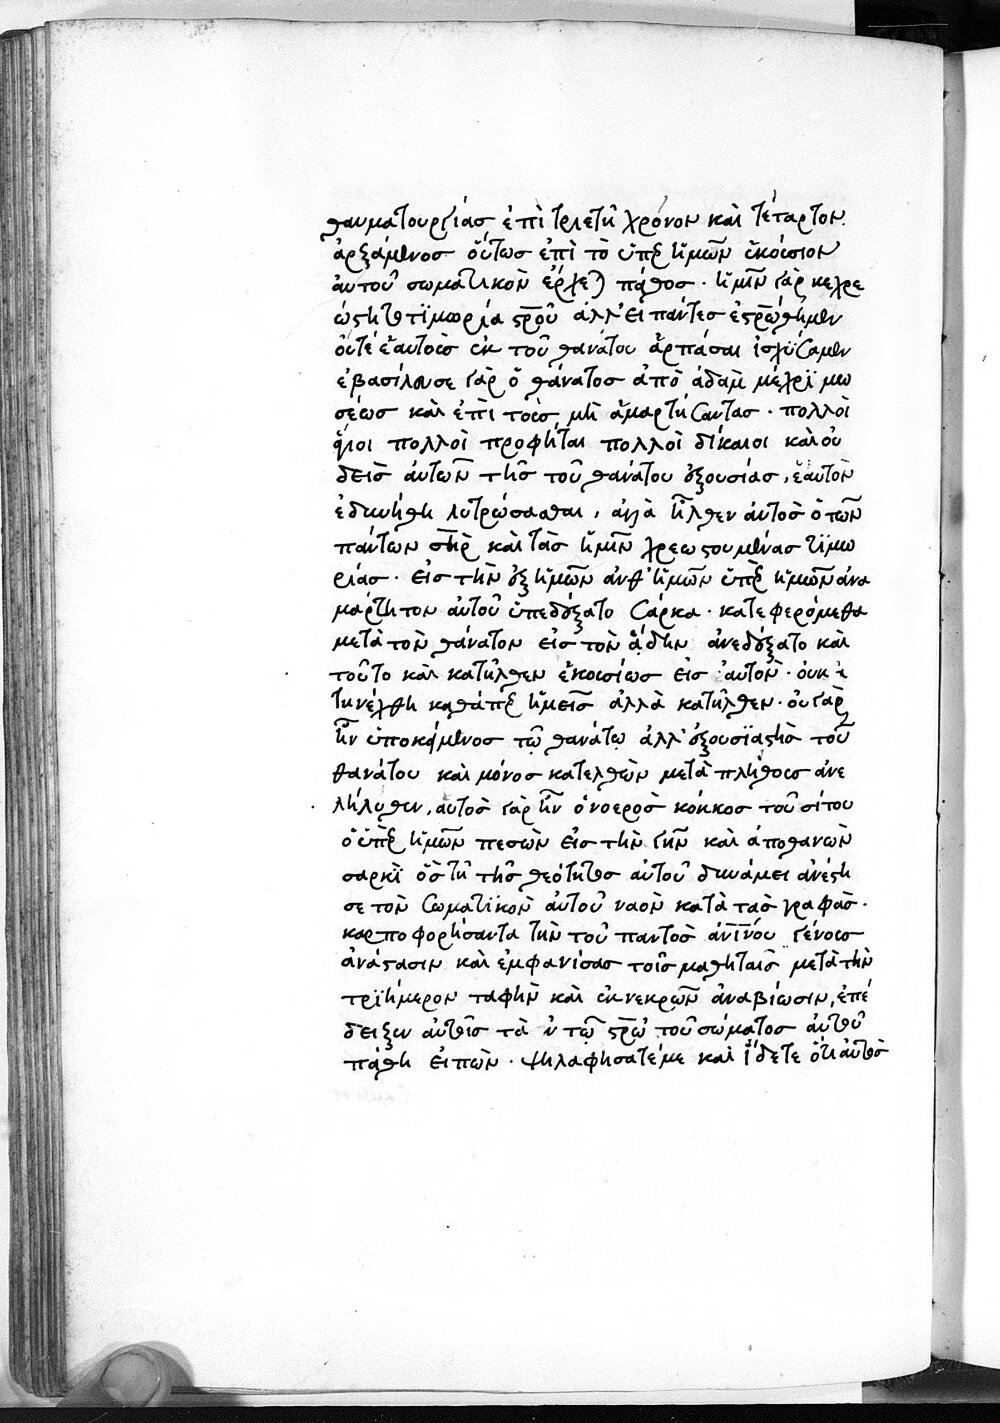 θαυματουργίας ἐπὶ τριετῆ χρόνον καὶ τέταρτον.
ἀρξάμενος οὕτως ἐπὶ τὸ ὑπὲρ ἡμῶν ἑκούσιον
αὐτοῦ σωματικὸν ἔρχεται πάθος · ἡμῖν γὰρ κεχρε
ώστητο τιμωρία στροῦ ἀλλ' εἰ πάντες ἐστρώθημεν
οὔτε ἑαυτοὺς ἐκ τοῦ θανάτου ἁρπάσαι ἰσχύσαμεν
ἐβασίλευσε γὰρ ὁ θάνατος ἀπὸ ἀδὰμ μέχρι μω
σέως καὶ ἐπὶ τοὺς μὴ ἁμαρτήσαντας · πολλοὶ
ἅγιοι πολλοὶ προφῆται πολλοὶ δίκαιοι καὶ οὐ
δεὶς αὐτῶν τῆς τοῦ θανάτου ἐξουσίας, ἑαυτὸν
ἐδυνήθη λυτρώσασθαι, ἀλλὰ ἦλθεν αὐτὸς ὁ τῶν
πάντων σὴρ καὶ τὰς ἡμῖν χρεωστουμένας τιμω
ρίας · εἰς τὴν ἐξ ἡμῶν ἀνθ' ἡμῶν ὑπὲρ ἡμῶν ἀνα
μάρτητον αὐτοῦ ὑπεδέξατο σάρκα · κατεφερόμεθα
μετὰ τὸν θάνατον εἰς τὸν ἅδην ἀνεδέξατο καὶ
τοῦτο καὶ κατῆλθεν ἑκουσίως εἰς αὐτὸν · οὐκ ἠ
τηνέχθη καθάπερ ἡμεῖς ἀλλὰ κατῆλθεν · οὐ γὰρ
ἦν ὑποκείμενος τῷ θανάτῳ ἀλλ' ἐξουσιαστὴς τοῦ
θανάτου καὶ μόνος κατελθὼν μετὰ πλήθους ἀνε
λήλυθεν, αὐτὸς γὰρ ἦν ὁ νοερὸς κόκκος τοῦ σίτου
ὁ ὑπὲρ ἡμῶν πεσὼν εἰς τὴν γῆν καὶ ἀποθανὼν
σαρκὶ ὃς τῇ τῆς θεότητος αὐτοῦ δυνάμει ἀνέστη
σε τὸν σωματικὸν αὐτοῦ ναὸν κατὰ τὰς γραφὰς ·
καρποφορήσαντα τὴν τοῦ παντὸς ἀνίνου γένους
ἀνάστασιν καὶ ἐμφανίσας τοῖς μαθηταῖς μετὰ τὴν
τριήμερον ταφὴν καὶ ἐκ νεκρῶν ἀναβίωσιν, ἐπέ
δειξεν αὐτοῖς τὰ ἐν τῷ στρῶ τοῦ σώματος αὐτοῦ
πάθη εἰπὼν · ψηλαφήσατέ με καὶ ἴδετε ὅτι αὐτὸς